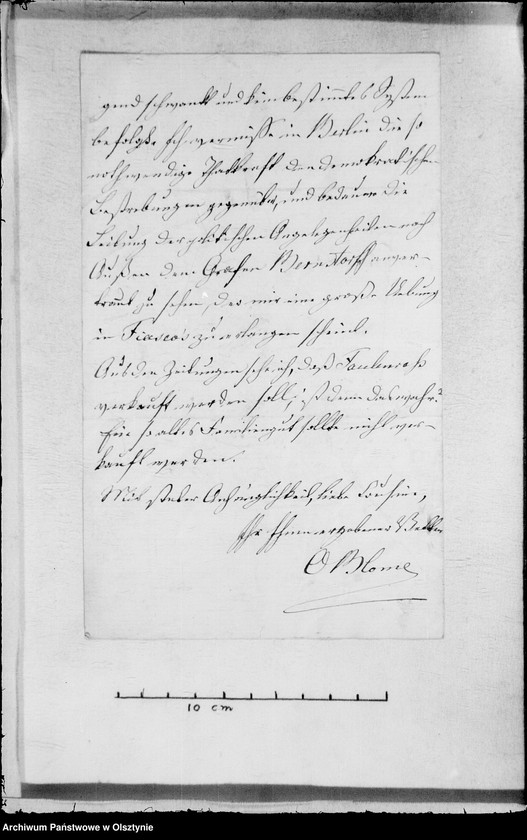 gend schwankt und kein bestimmtes System
befolgt. Ich vermisse in Berlin die so
nothwendige Thatkraft den demokratischen
Bestrebungen gegenüber, und bedauere die
Leitung der politischen Angelegenheiten nach
Außen dem Grafen Bernstorff anver-
traut zu sehen, der mir eine große Uebung
in Fiasco's zu erlangen scheint.
Aus den Zeitungen sehe ich, daß
verkauft werden soll; ist denn das wahr?
Ein so altes Familiengut sollte nicht ver-
kauft werden.
Mit steter Anhänglichkeit, liebe Cousine,
Ihr Ihnen ergebener Vetter
O Blome
10 cm
Archiwum Państwowe w Olsztynie